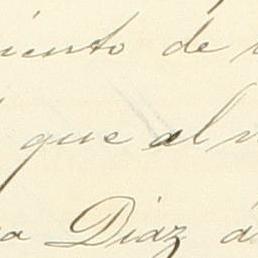 iento de
que al
Diaz á